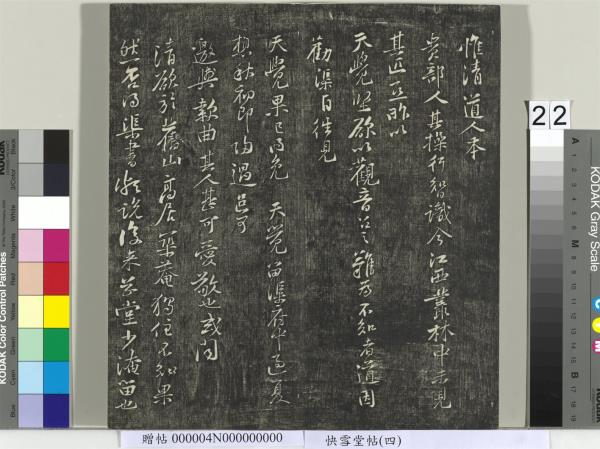 惟清道人本
貴部人其操行智識今江西叢林中未見
其匹亦昨以
天覺堅欲以觀音召之難為不知者道因
勸渠自往見
天覺果已得免 天覺留渠府中過夏
想秋初即歸過邑可
邀與款曲其人甚可愛敬也或聞
清欲於舊山高居築菴獨住不知果
然否得渠書頗說後來草堂少淹留也
22
贈帖 000004N000000000
快雪堂帖(四)
KODAK Color Control Patches
Blue
Cyan
Green
Yellow
Red
Magenta
White
3/Color
Black
KODAK Gray Scale
C Y M
A 1 2 3 4 5 6 M 8 9 10 11 12 13 14 15 B 17 18 19